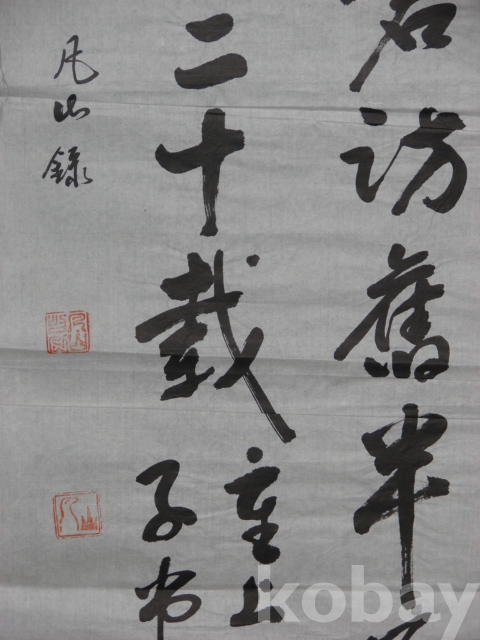 訪舊半
二十載
重上
子
凡山錄
kobay